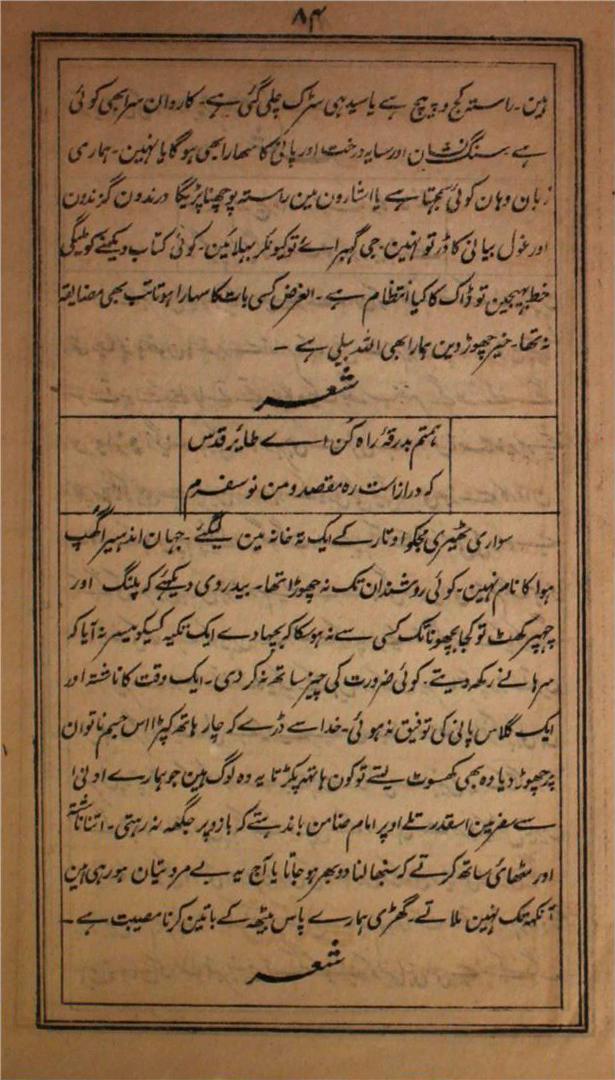 ۸۴
ہین۔ راستہ کج و پیچ ہے یا سیدہی سڑک چلی گئی ہے۔ کاروان سرا بھی کوئی
ہے سنگ نشان اور سایہ درخت اور پانی کا سہارا بھی ہوگا یا نہین۔ ہماری
زبان وہان کوئی سمجہتا ہے یا اشارون مین راستہ پوچھنا پڑیگا درندون گزندون
اور غول بیابانی کا ڈر تو نہین۔ جی گہبرائے تو کیونکر بہلائین۔ کوئی کتاب دیکھنے کو ملیگی
خط بہیجین تو ڈاک کا کیا انتظام ہے۔ الغرض کسی بات کا سہارا ہوتا تب بھی مضایقہ
نہ تھا۔ خیر چھوڑ دین ہمارا بھی اللہ بیلی ہے ۔
شعر
ہمتم بدرقۂ راہ کن اے طایر قدس
کہ دراز است رہ مقصد و من نو سفرم
سواری ٹھیری مجکو اوتار کے ایک تہ خانہ مین لیگئے۔ جہان اندہیرا گھپ
ہوا کا نام نہین۔ کوئی روشندان تک نہ چھوڑا تھا۔ بیدردی دیکھئے کہ پلنگ اور
چہپر کھٹ تو کجا بچھونا تک کسی سے نہ ہوسکا کہ بچھادے ایک تکیہ کسیکو میسر نہ آیا کہ
سرہانے رکھہ دیتے۔ کوئی ضرورت کی چیز ساتھ نہ کر دی۔ ایک وقت کا ناشتہ اور
ایک گلاس پانی کی توفیق نہ ہوئی۔ خدا سے ڈرے کہ چار ہاتھ کپڑا اس جسم ناتوان
پر چھوڑ دیا وہ بھی کھسوٹ لیتے تو کون ہاتھہ پکڑتا یہ وہ لوگ ہین جو ہمارے ادنیٰ
سے سفر مین اسقدر تلے اوپر امام ضامن باندہتے کہ بازو پر جگھہ نہ رہتی۔ اتنا ناشتے
اور مٹھائی ساتھ کرتے کہ سنبھالنا دوبھر ہو جاتا یا آج یہ بے مروتیان ہو رہی ہین
آنکھہ تک نہین ملاتے۔ گھڑی ہمارے پاس بیٹھہ کے باتین کرنا مصیبت ہے۔
شعر